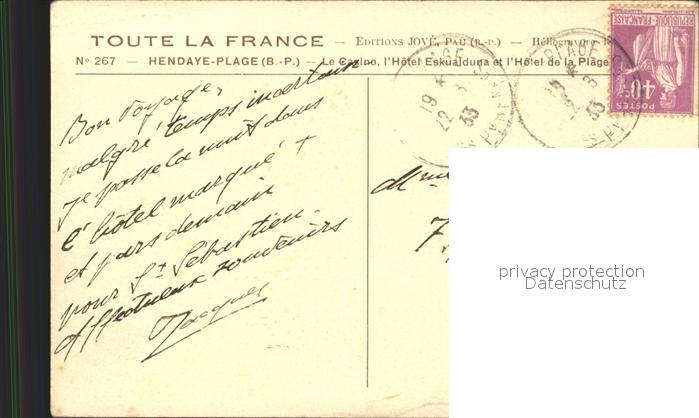 TOUTE LA FRANCE — EDITIONS JOVÉ, PAU (B.-P.) — Héliogravure
N° 267 — HENDAYE-PLAGE (B.-P.) — Le Casino, l'Hôtel Eskualduna et l'Hôtel de la Plage
RÉPUBLIQUE FRANÇAISE
40c
POSTES
PLAGE
19 * 22 8 33
PLAGE
33
Bon voyage,
malgré temps incertain
Je passe la nuit dans
l'hôtel marqué +
et pars demain
pour St Sébastien.
Affectueux souvenirs
Jacques
Mme
7
privacy protection
Datenschutz